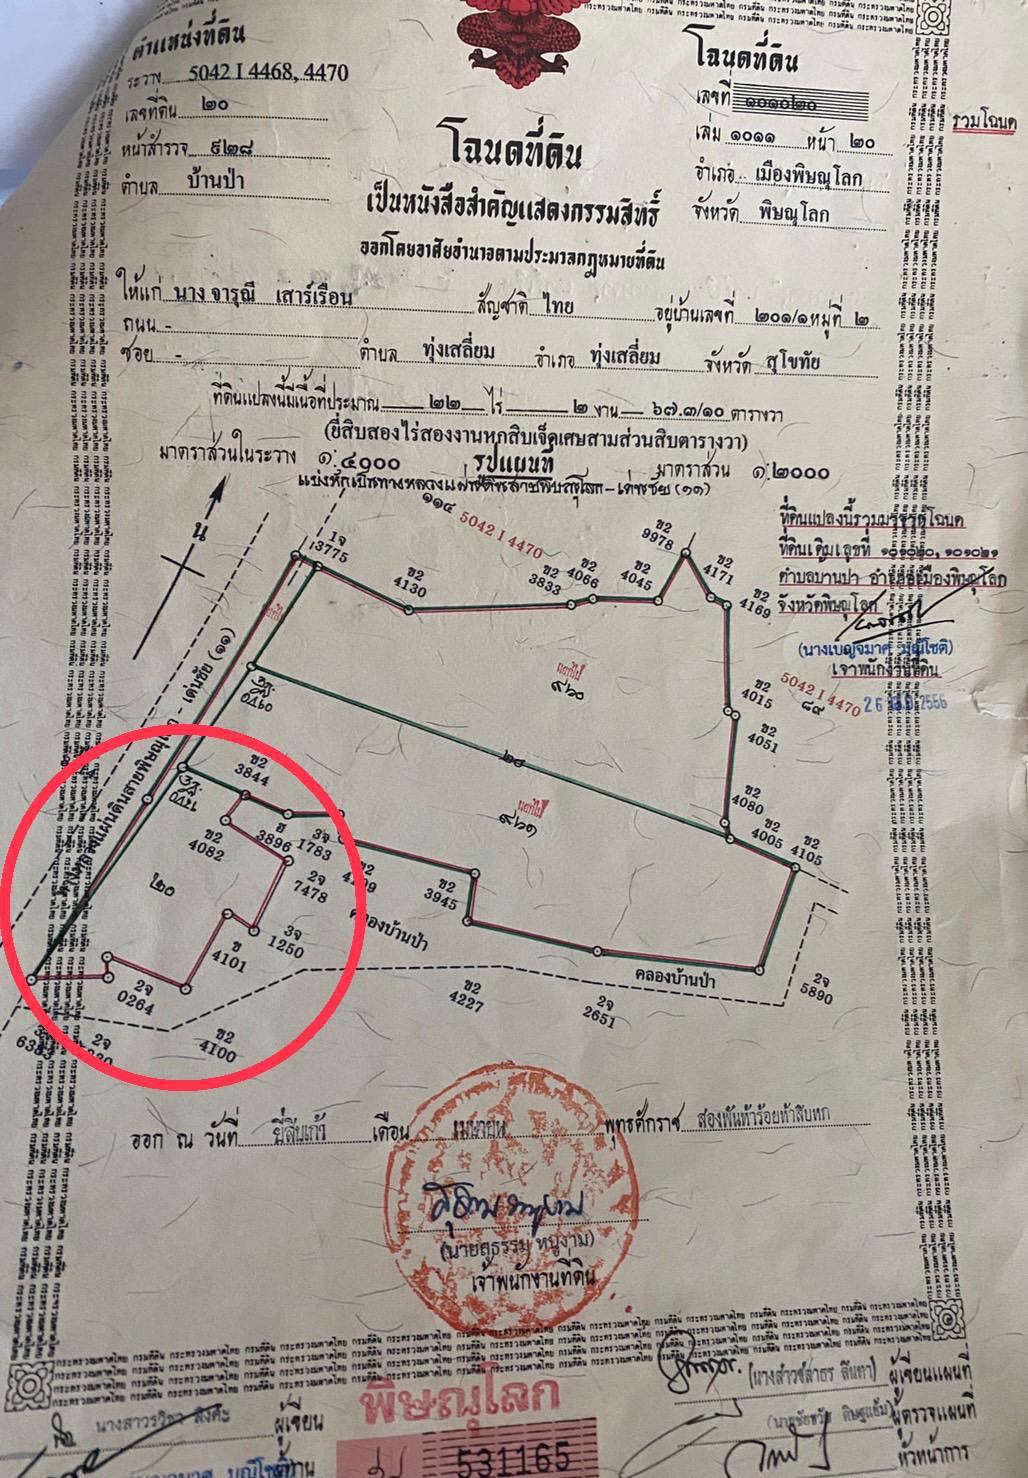 ตำแหน่งที่ดิน
ระวาง 5042 I 4468, 4470
เลขที่ดิน ๒๐
หน้าสำรวจ ๕๒๘
ตำบล บ้านป่า
โฉนดที่ดิน
เลขที่ ๑๐๑๐๒๐
เล่ม ๑๐๑๑ หน้า ๒๐
อำเภอ เมืองพิษณุโลก
จังหวัด พิษณุโลก
รวมโฉนด
โฉนดที่ดิน
เป็นหนังสือสำคัญแสดงกรรมสิทธิ์
ออกโดยอาศัยอำนาจตามประมวลกฎหมายที่ดิน
ให้แก่ นาง จารุณี เสาร์เรือน สัญชาติ ไทย อยู่บ้านเลขที่ ๒๐๑/๑ หมู่ที่ ๒
ถนน -
ซอย - ตำบล ทุ่งเสลี่ยม อำเภอ ทุ่งเสลี่ยม จังหวัด สุโขทัย
ที่ดินแปลงนี้มีเนื้อที่ประมาณ ๒๒ ไร่ ๒ งาน ๖๗.๓/๑๐ ตารางวา
(ยี่สิบสองไร่สองงานหกสิบเจ็ดเศษสามส่วนสิบตารางวา)
มาตราส่วนในระวาง ๑:๔๐๐๐ รูปแผนที่ มาตราส่วน ๑:๒๐๐๐
แบ่งหักเป็นทางหลวงแผ่นดินสายพิษณุโลก-เด่นชัย (๑๑)
๑๑๔ 5042 I 4470
ที่ดินแปลงนี้รวมมาจากโฉนด
ที่ดินเดิมเลขที่ ๑๐๑๐๒๐, ๑๐๑๐๒๑
ตำบลบ้านป่า อำเภอเมืองพิษณุโลก
จังหวัดพิษณุโลก
(นางเบญจมาศ มุณีโชติ)
เจ้าพนักงานที่ดิน
5042 I 4470
๘๙
น
1จ 3775
ช2 4130
ช2 3833
ช2 4066
ช2 4045
ช2 9978
ช2 4171
ช2 4169
๙๖๐
ช2 4015
ช2 4051
ช2 4080
ช2 4005
ช2 4105
๒๘
๙๖๑
ทางหลวงแผ่นดินสายพิษณุโลก - เด่นชัย (๑๑)
ช2 3844
ช2 4082
ช 3896
3จ 1783
2จ 7478
ช2 3945
๒๐
คลองบ้านป่า
3จ 1250
ช 4101
2จ 0264
คลองบ้านป่า
2จ 5890
ช2 4227
2จ 2651
ช2 4100
ออก ณ วันที่ ยี่สิบเก้า เดือน เมษายน พุทธศักราช สองพันห้าร้อยห้าสิบหก
(นายสุธรรม หนูงาม)
เจ้าพนักงานที่ดิน
พิษณุโลก
531165
ผู้เขียน
ผู้เขียนแผนที่
ผู้ตรวจแผนที่
หัวหน้าการ